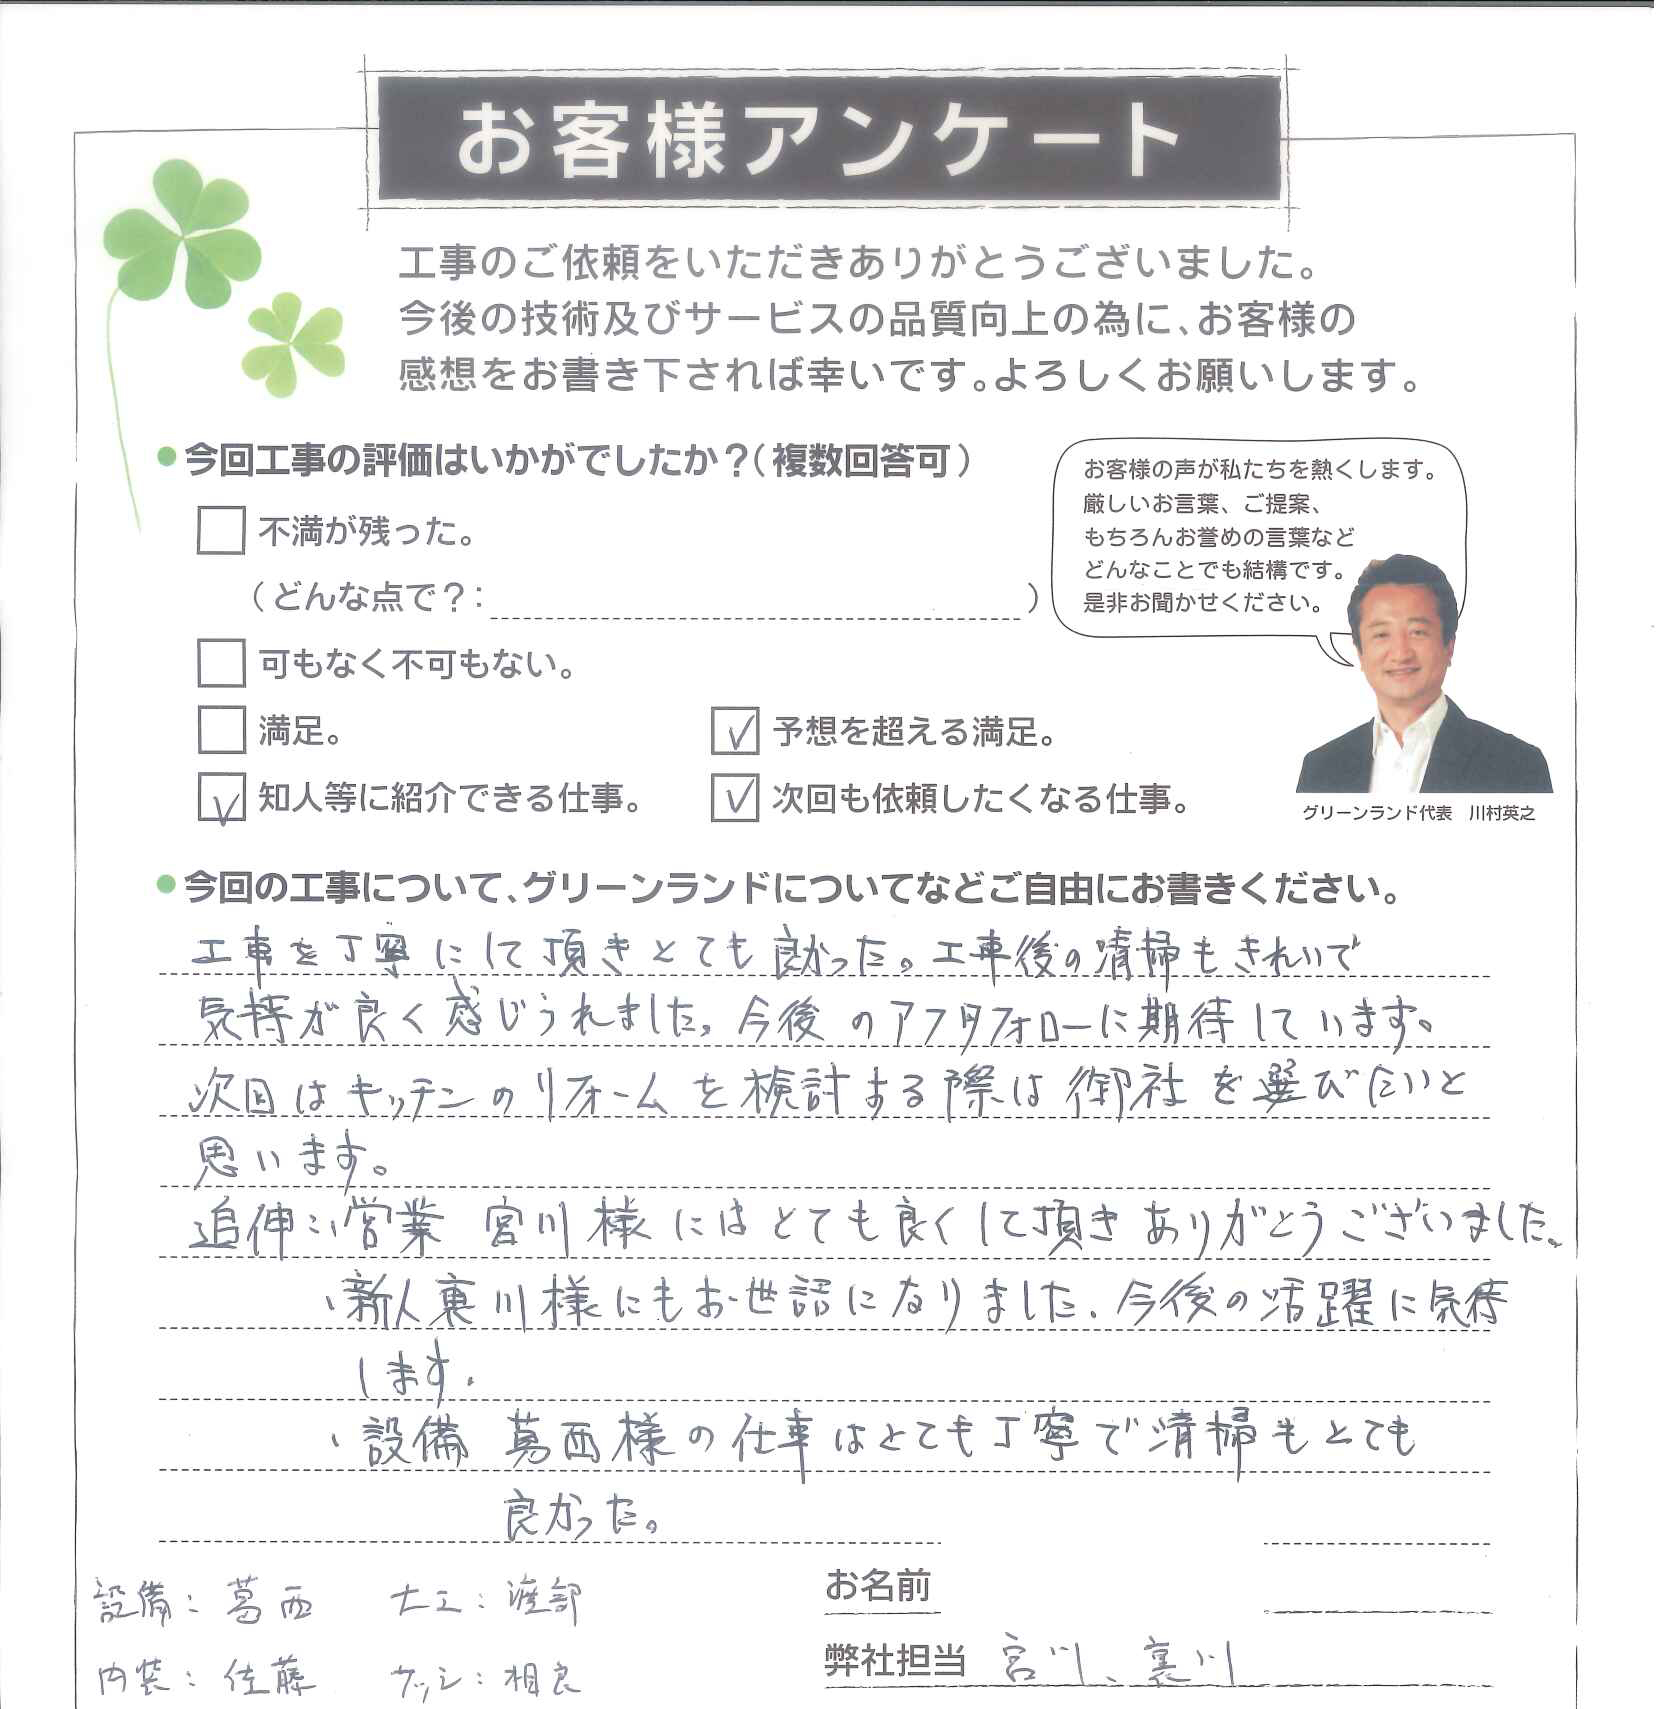 お客様アンケート
工事のご依頼をいただきありがとうございました。
今後の技術及びサービスの品質向上の為に、お客様の
感想をお書き下されば幸いです。よろしくお願いします。
今回工事の評価はいかがでしたか？（複数回答可）
不満が残った。
（どんな点で？： ）
可もなく不可もない。
満足。
予想を超える満足。
知人等に紹介できる仕事。
次回も依頼したくなる仕事。
お客様の声が私たちを熱くします。
厳しいお言葉、ご提案、
もちろんお誉めの言葉など
どんなことでも結構です。
是非お聞かせください。
グリーンランド代表 川村英之
今回の工事について、グリーンランドについてなどご自由にお書きください。
工事を丁寧にして頂きとても良かった。工事後の清掃もきれいで
気持が良く感じられました。今後のアフタフォローに期待しています。
次回はキッチンのリフォームを検討する際は御社を選びたいと
思います。
追伸：・営業 宮川様にはとても良くして頂きありがとうございました。
・新人裏川様にもお世話になりました。今後の活躍に気待
します。
・設備 葛西様の仕事はとても丁寧で清掃もとても
良かった。
設備：葛西 大工：渡部
内装：佐藤 サッシ：相良
お名前
弊社担当 宮川、裏川